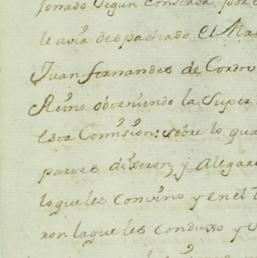 jornado segun constava por
le avia despachado el Ma
Juan fernandes de Cordov
Reino obteniendo la Super
esta Comision: sobre lo qua
partes dixeron, y Alegaro
lo que les Convino y en el
ron la que les Conduxo y